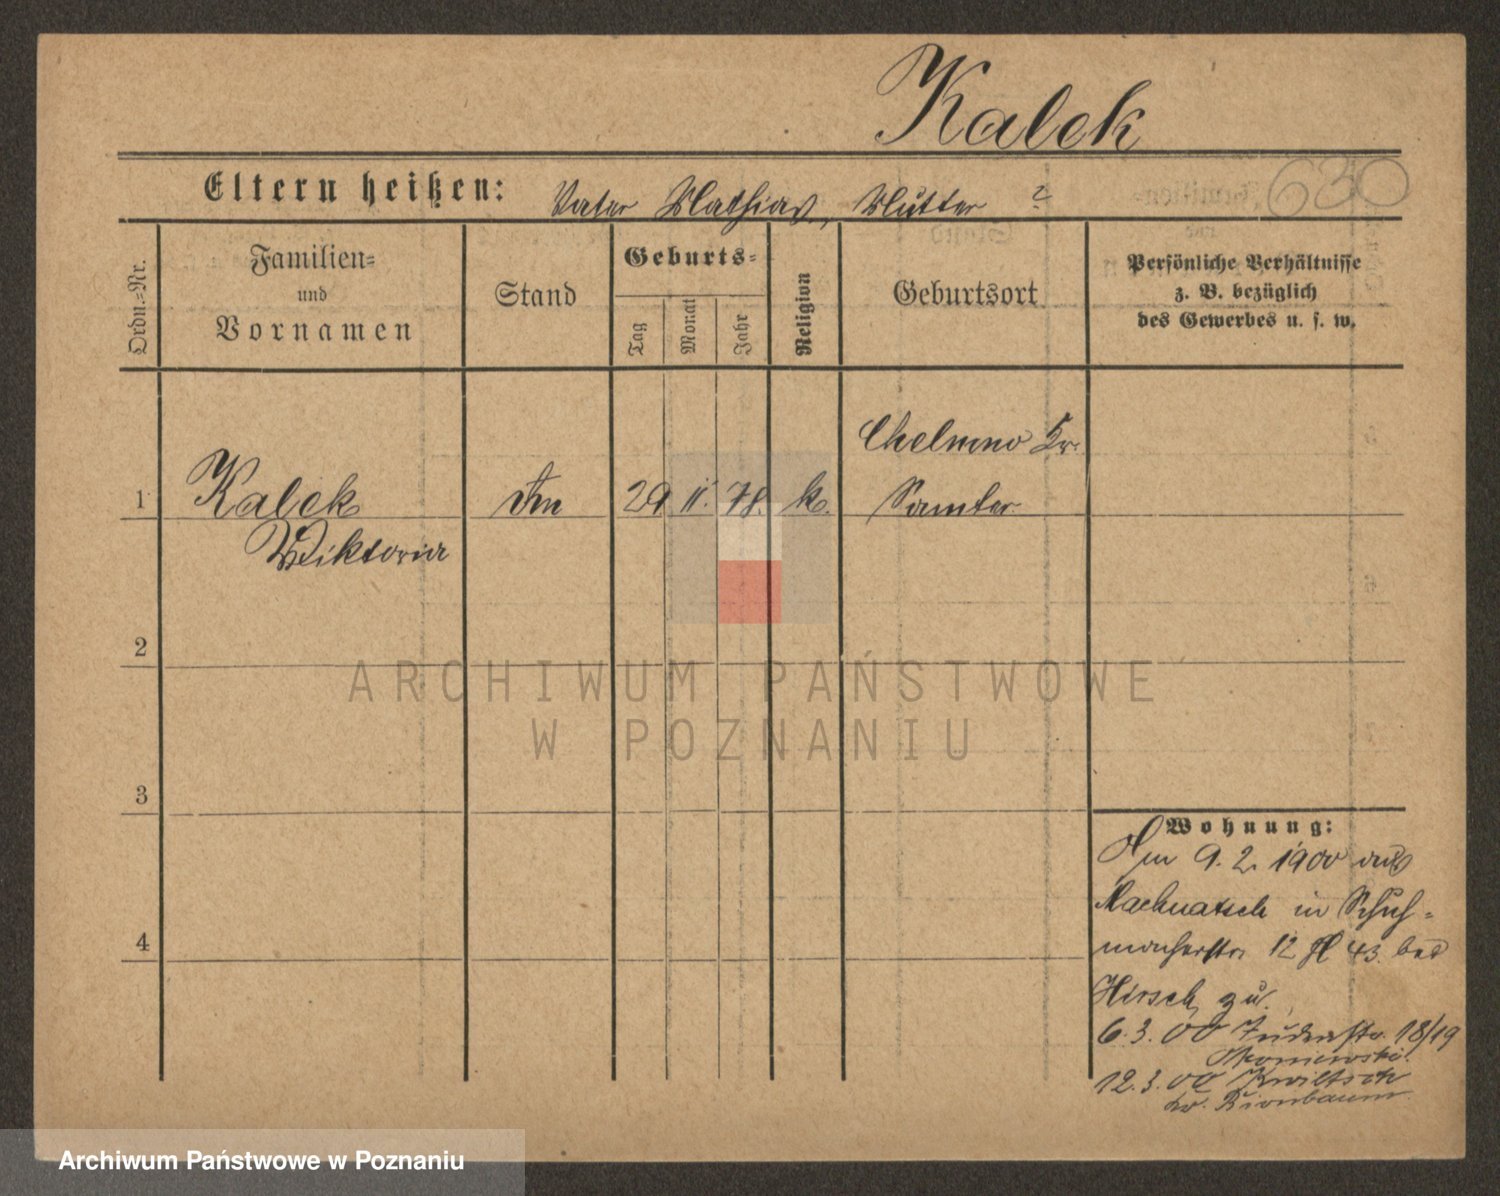 Kalek
630
Eltern heißen: Vater Mathias, Mutter ?
Ordn.=Nr.
Familien=
und
Vornamen
Stand
Geburts=
Tag
Monat
Jahr
Religion
Geburtsort
Persönliche Verhältnisse
z. B. bezüglich
des Gewerbes u. s. w.
Chelmno Kr.
1 Kalek 29 11. 78. k. Samter
Wiktoria
2
3
4
Wohnung:
Am 9. 2. 1900 aus
in Schuh=
macherstr. 12 43. bei
Hirsch zu.
6. 3. 00 Judenstr. 18/19
12. 3. 00 Kwiltsch
Kr. Birnbaum
ARCHIWUM PAŃSTWOWE
W POZNANIU
Archiwum Państwowe w Poznaniu